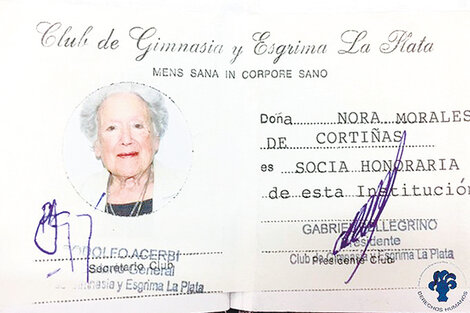 Club de Gimnasia y Esgrima La Plata
MENS SANA IN CORPORE SANO
Doña NORA MORALES
DE CORTIÑAS
es SOCIA HONORARIA
de esta Institución
RODOLFO ACERBI
Secretario General
Secretario Club
de Gimnasia y Esgrima La Plata
GABRIEL PELLEGRINO
Presidente
Club de Gimnasia y Esgrima La Plata
Presidente Club
DERECHOS HUMANOS